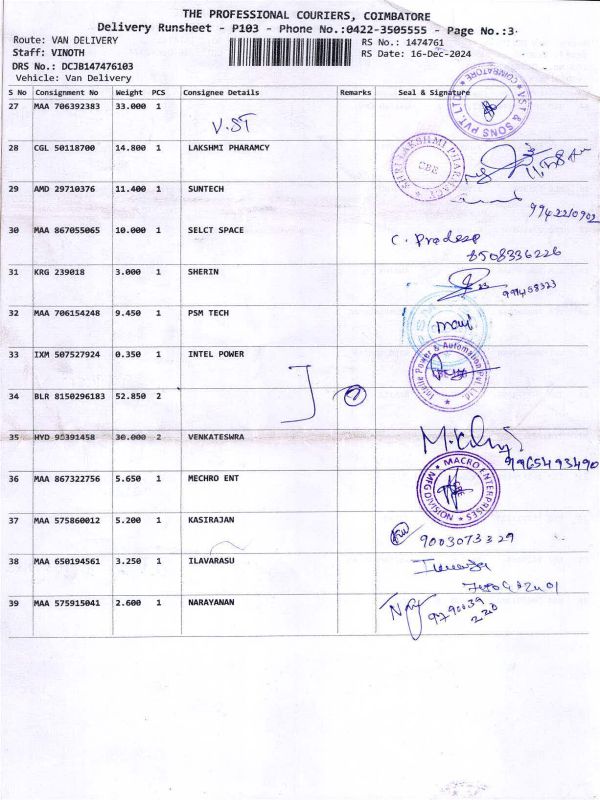 THE PROFESSIONAL COURIERS, COIMBATORE
Delivery Runsheet - P103 - Phone No.:0422-3505555 - Page No.:3
Route: VAN DELIVERY
RS No.: 1474761
Staff: VINOTH
RS Date: 16-Dec-2024
DRS No.: DCJB147476103
Vehicle: Van Delivery
S No Consignment No Weight PCS Consignee Details Remarks Seal & Signature
27 MAA 706392383 33.000 1 V.ST
VST & SONS PVT. LTD. COIMBATORE
28 CGL 50118700 14.800 1 LAKSHMI PHARAMCY
SHRI LAKSHMI PHARMACY CBE
29 AMD 29710376 11.400 1 SUNTECH
9942210902
30 MAA 867055065 10.000 1 SELCT SPACE C. Pradeep
8508336226
31 KRG 239018 3.000 1 SHERIN
32 MAA 706154248 9.450 1 PSM TECH
33 IXM 507527924 0.350 1 INTEL POWER
Power & Automation Pvt. Ltd.
34 BLR 8150296183 52.850 2
35 HYD 95391458 30.000 2 VENKATESWRA
9965493490
36 MAA 867322756 5.650 1 MECHRO ENT
MACRO ENTERPRISES MFG DIVISION
37 MAA 575860012 5.200 1 KASIRAJAN
9003073329
38 MAA 650194561 3.250 1 ILAVARASU
39 MAA 575915041 2.600 1 NARAYANAN
9790039
220